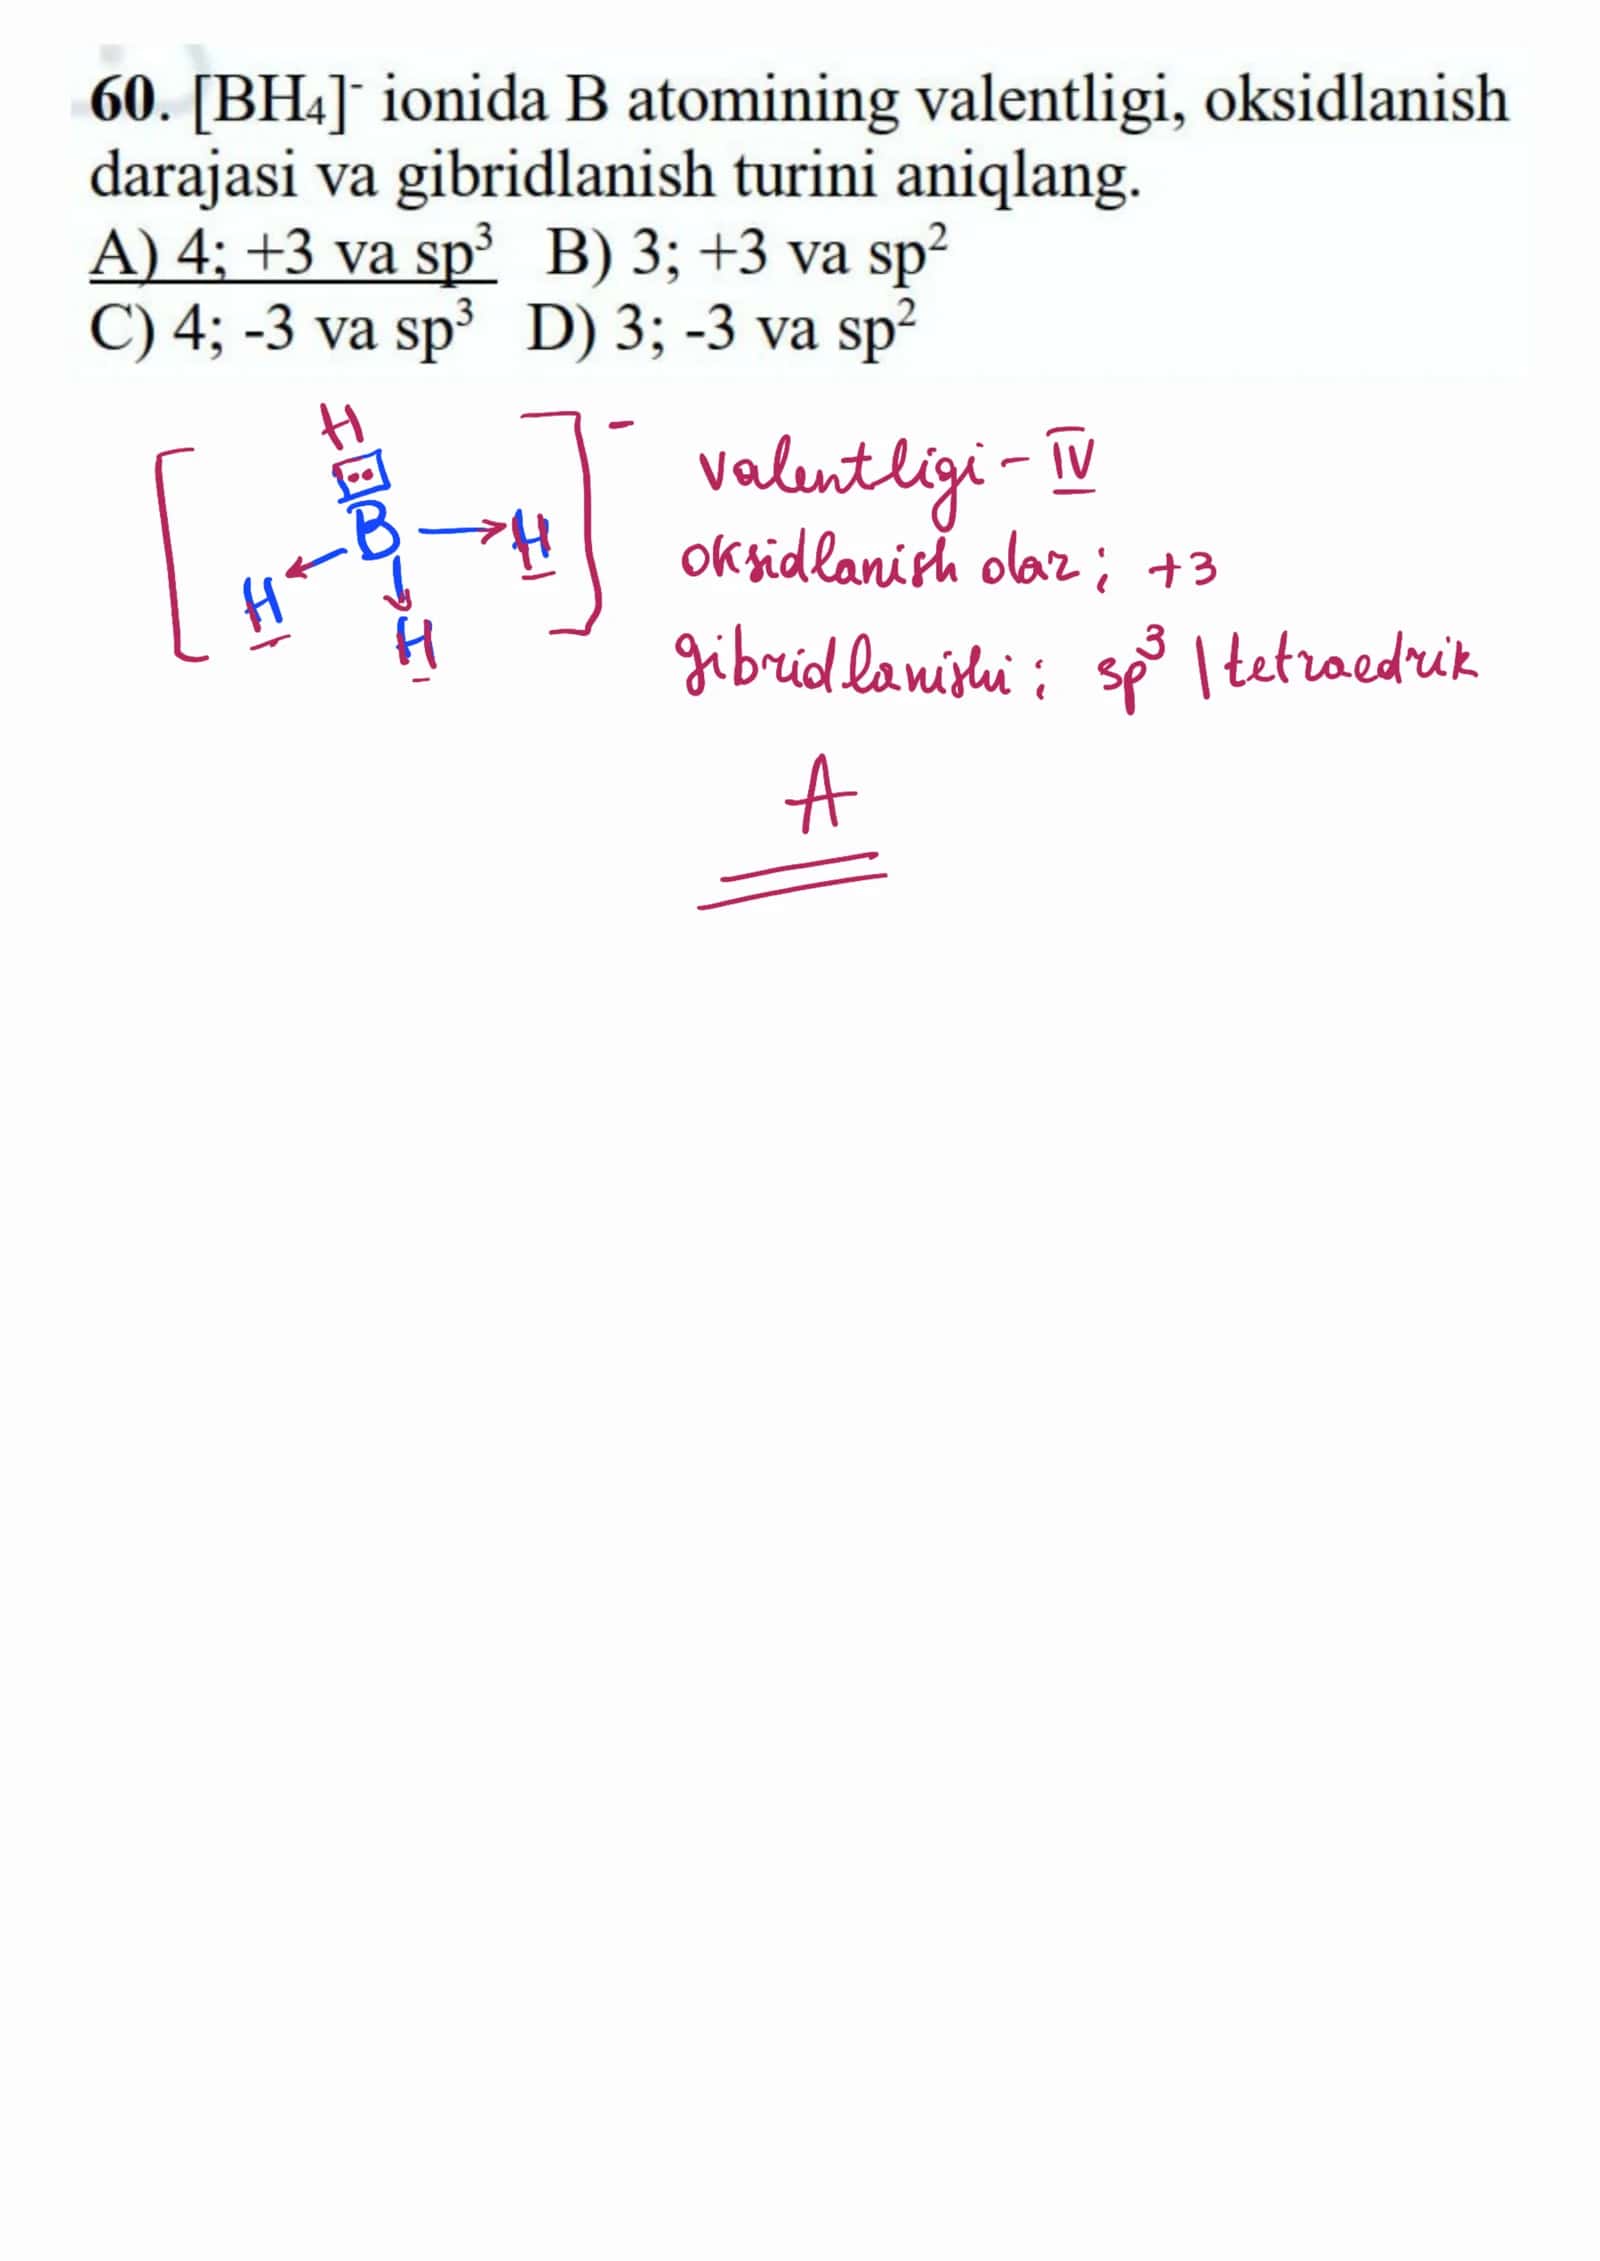 60. [BH₄]⁻ ionida B atomining valentligi, oksidlanish
darajasi va gibridlanish turini aniqlang.
A) 4; +3 va sp³ B) 3; +3 va sp²
C) 4; -3 va sp³ D) 3; -3 va sp²
H
B H
H
H
-
valentligi - IV
oksidlanish dar; +3
gibridlanishi; sp³ | tetraedrik
A